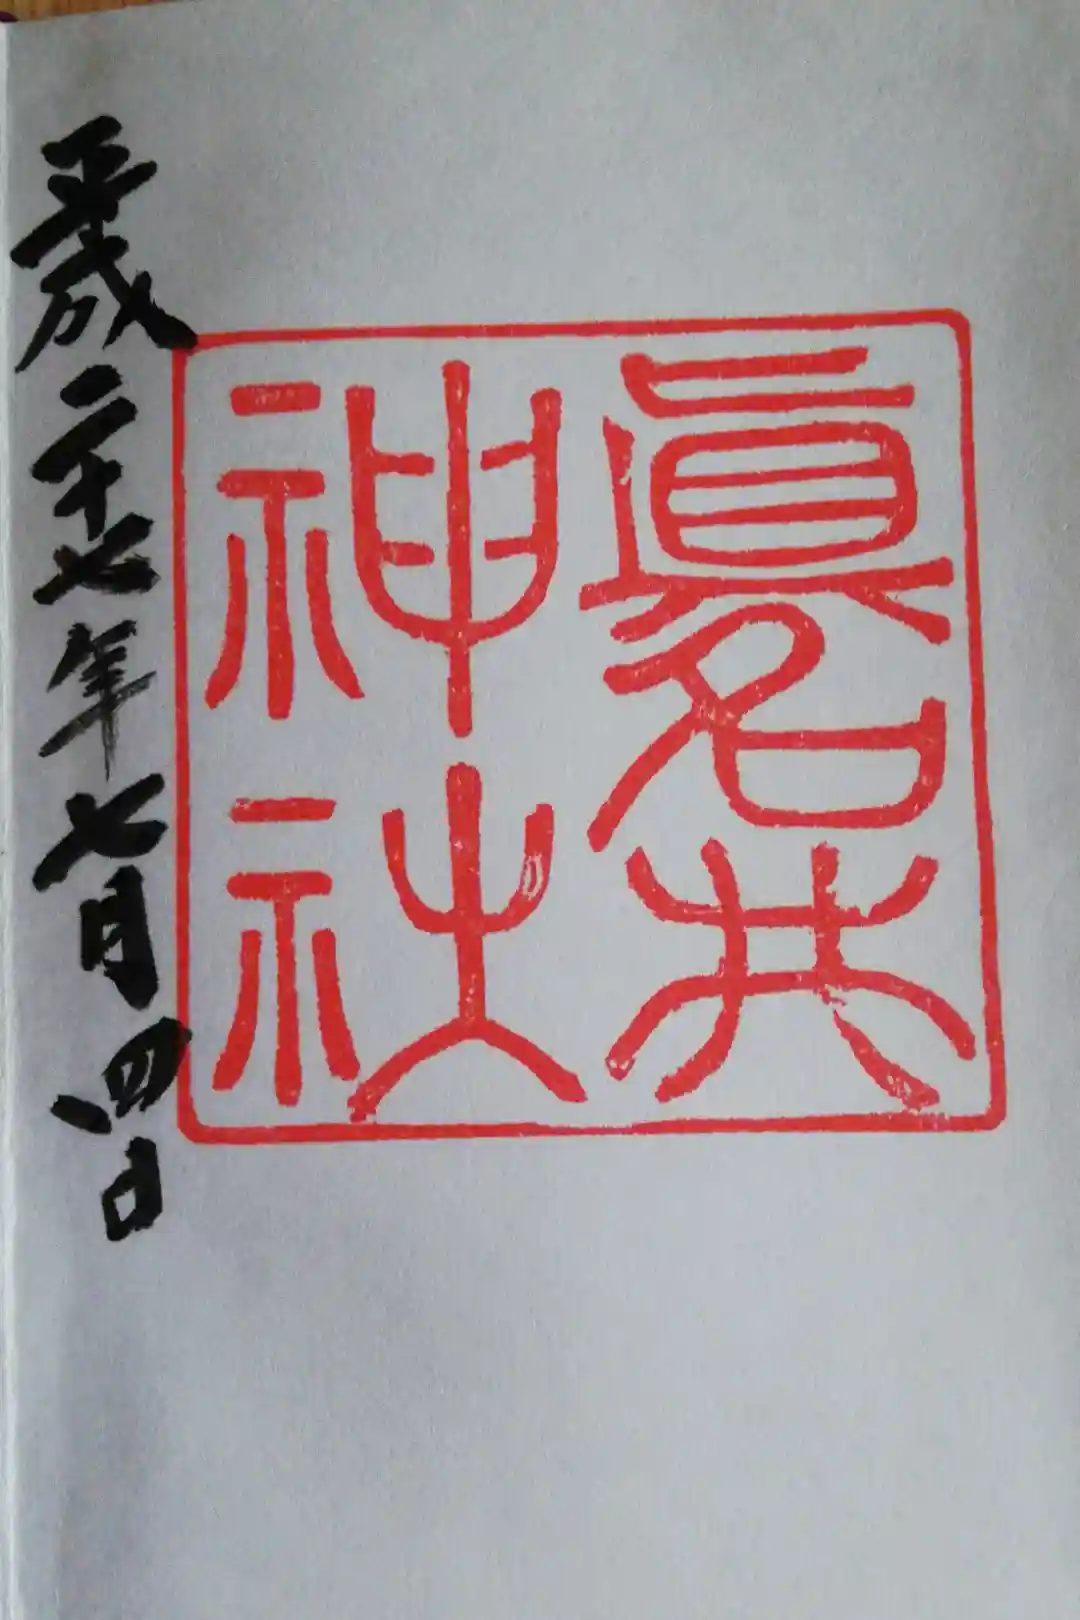 眞名井
神社
平成二十七年七月四日